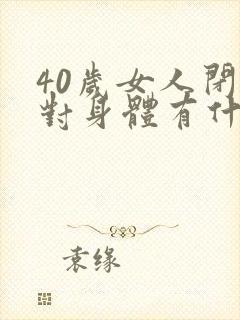 40歲女人閉
對身體有什
袁缘